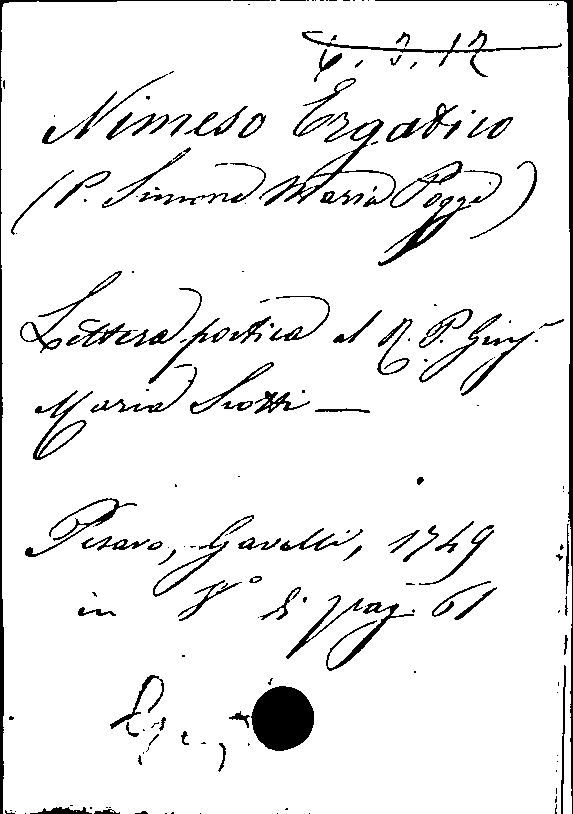 6. 3. 12
Nimeso Ergatico
(P. Simone Maria Poggi)
Lettera poetica al R. P. Gius.
Maria Scotti —
Pesaro, Gavelli, 1749
in 8° di pag. 61